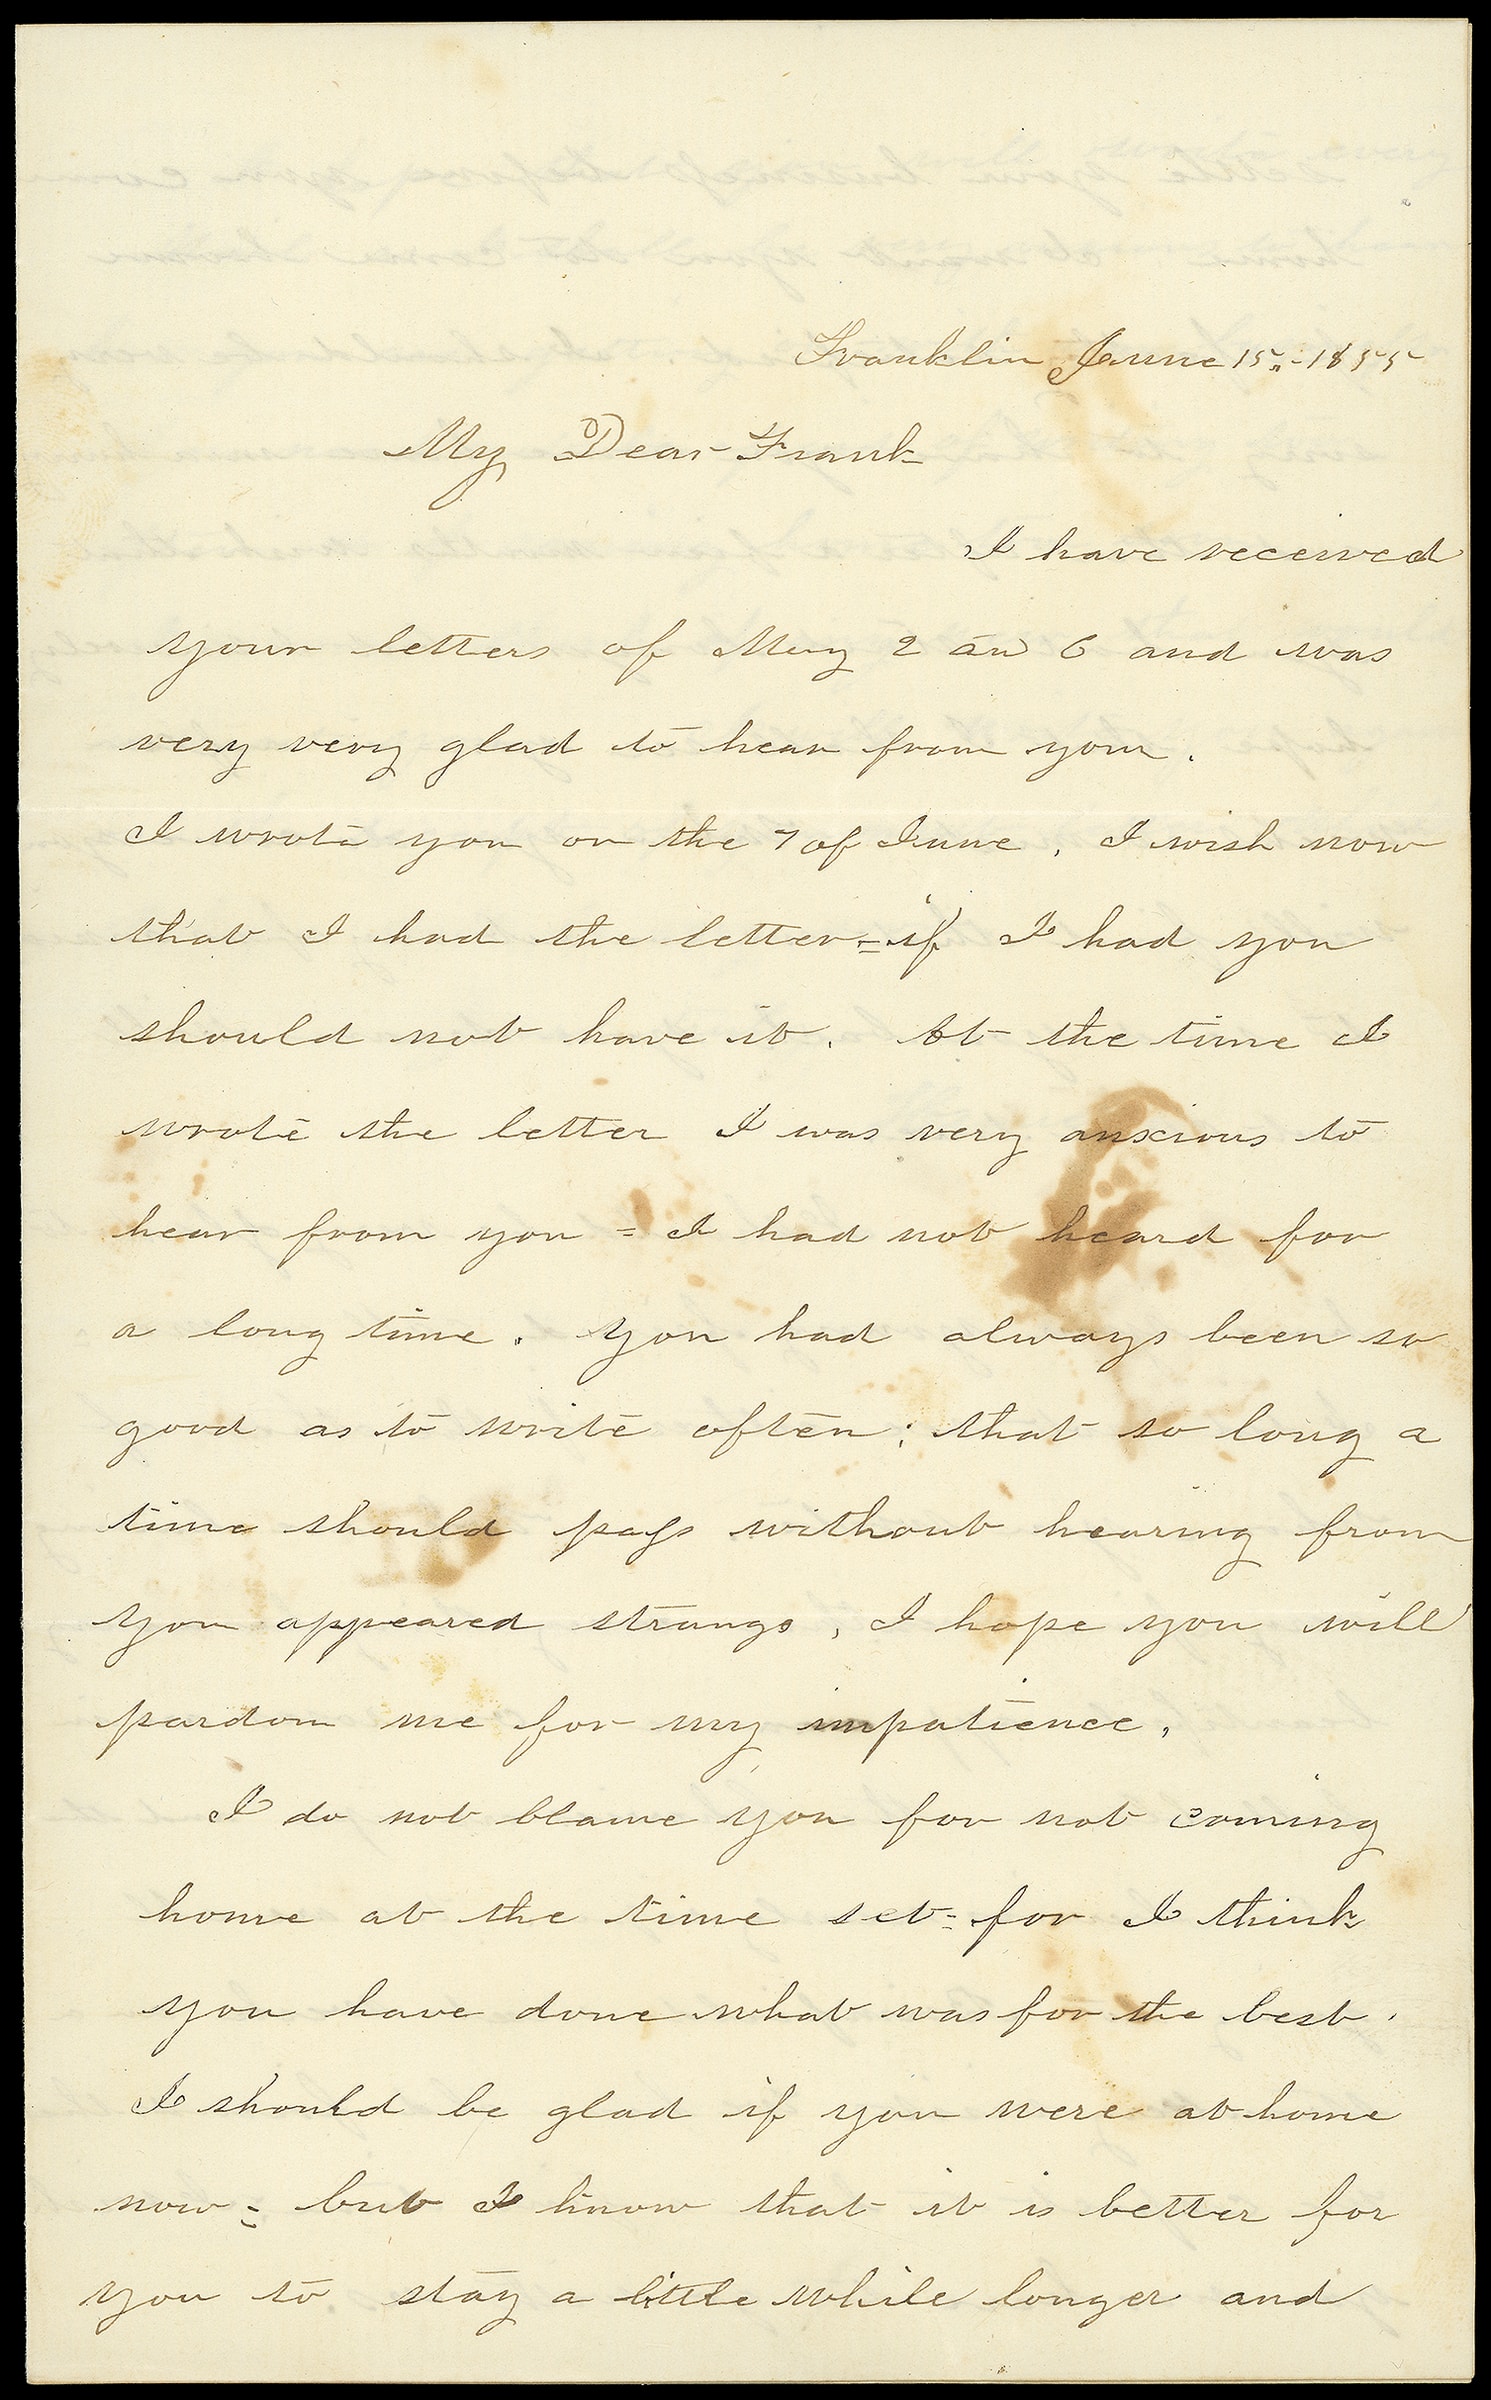 Franklin June 15,, - 1855
My Dear Frank
I have received
your letters of May 2 an 6 and was
very very glad to hear from you.
I wrote you on the 7 of June. I wish now
that I had the letter = if I had you
should not have it. At the time I
wrote the letter I was very anxious to
hear from you = I had not heard for
a long time. You had always been so
good as to write often; that so long a
time should pass without hearing from
you appeared strange, I hope you will
pardon me for my impatience,
I do not blame you for not coming
home at the time set = for I think
you have done what was for the best.
I should be glad if you were at home
now = but I know that it is better for
you to stay a little while longer and